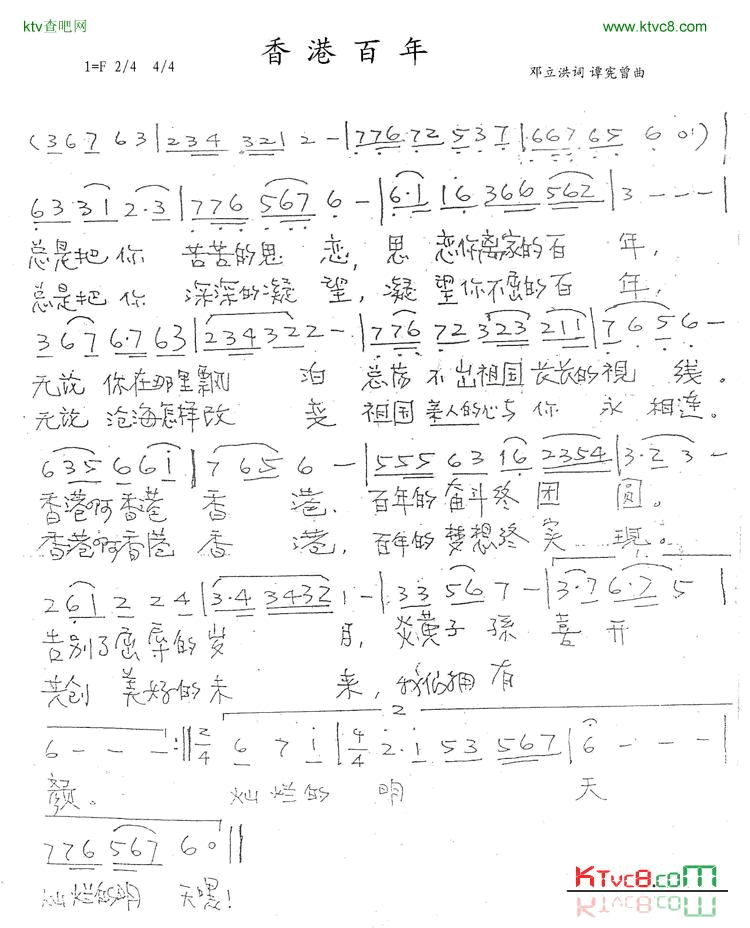 ktv查吧网
www.ktvc8.com
香港百年
1=F 2/4 4/4
邓立洪词 谭宪曾曲
(3 6 7 6 3 | 2 3 4 3 2 1 2 - | 7 7 6 7 2 5 3 7 | 6 6 7 6 5 6 0 1) |
6 3·3 1 2·3 | 7 7 6 5 6 7 6 - | 6·1 1 6 3 6 6 5 6 2 | 3 - - - |
总是把你 苦苦的思 恋, 思 恋你离家的百 年,
总是把你 深深的凝 望, 凝 望你不屈的百 年,
3 6 7 6·7 6 3 | 2 3 4 3 2 2 - | 7 7 6 7 2 3 2 3 2 1 1 | 7 6 5 6 -
无论 你在那里飘 泊 总荡 不出祖国长长的視 线。
无论 沧海怎样改 变 祖国亲人的心与 你 永 相连。
6 3 5 6 6 i | 7 6 5 6 - | 5 5 5 6 3 1 6 2 3 5 4 | 3·2 3 -
香港啊香港 香 港, 百年的奋斗终 团 圆。
香港啊香港 香 港, 百年的梦想终 实 现。
2 6 i 2 2 4 | 3·4 3 4 3 2 1 - | 3 3 5 6 7 - | 3·7 6·7 5 |
告别了屈辱的岁 月, 炎黄子 孫 喜 开
共创 美好的未 来, 我们拥 有
2
6 - - - :|| 2/4 6 7 i | 4/4 2·i 5 3 5 6 7 | 6 - - - |
颜。 灿 烂的 明 天
7 7 6 5 6 7 6 0 ||
灿烂的明 天嘿!
KTvc8.com